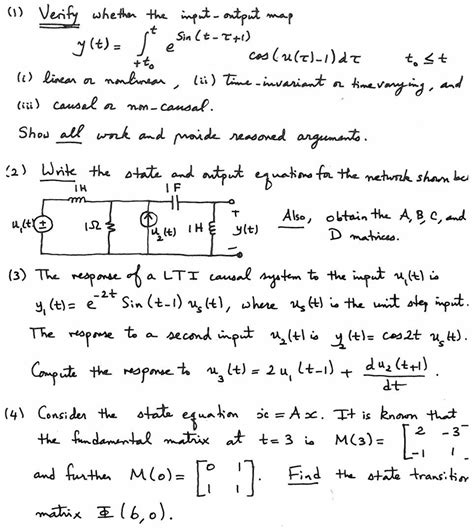 (1) Verify whether the input-output map
y(t) = ∫_{+t₀}^{t} e^{Sin(t-τ+1)} cos(u(τ)-1)dτ t₀ ≤ t
(i) linear or nonlinear, (ii) time-invariant or timevarying, and
(iii) causal or non-causal.
Show all work and provide reasoned arguments.
(2) Write the state and output equations for the network shown be
1H 1F
u₁(t) ± 1Ω u₂(t) 1H + y(t) - Also, obtain the A, B, C, and
D matrices.
(3) The response of a LTI causal system to the input u₁(t) is
y₁(t) = e^{-2t} Sin(t-1) u_s(t), where u_s(t) is the unit step input.
The response to a second input u₂(t) is y₂(t) = cos2t u_s(t).
Compute the response to u₃(t) = 2u₁(t-1) + du₂(t+1)/dt.
(4) Consider the state equation ẋ = Ax. It is known that
the fundamental matrix at t=3 is M(3) = [2 -3; -1 1]
and further M(0) = [0 1; 1 1]. Find the state transition
matrix Φ(6,0).